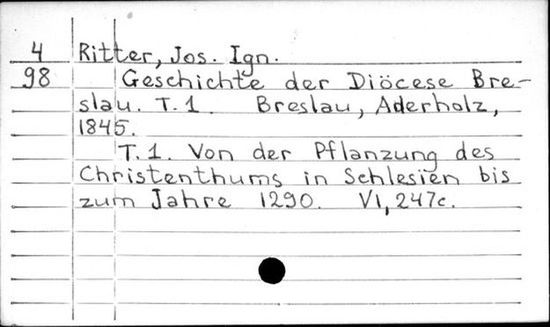 4 Ritter, Jos. Ign.
98 Geschichte der Diöcese Bre-
slau. T.1. Breslau, Aderholz,
1845.
T.1. Von der Pflanzung des
Christenthums in Schlesien bis
zum Jahre 1290. VI, 247c.